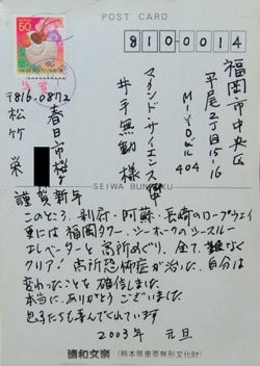 POST CARD
50
810-0014
福岡市中央区
平尾2丁目15-16
M-Yビル404
マインド・サイエンス
井手無動様
〒816-0872
春日市桜ヶ
松竹 栄
SEIWA BUNRAKU
謹賀新年
このところ、別府・阿蘇・長崎のロープウェイ
更には福岡タワー、シーホークのシースルー
エレベーターと高所めぐり、全て難なく
クリア!高所恐怖症が治った、自分は
変わったことを確信しました。
本当に、ありがとうございました。
息子たちも喜んでくれています
2003年 元旦
清和文楽(熊本県重要無形文化財)